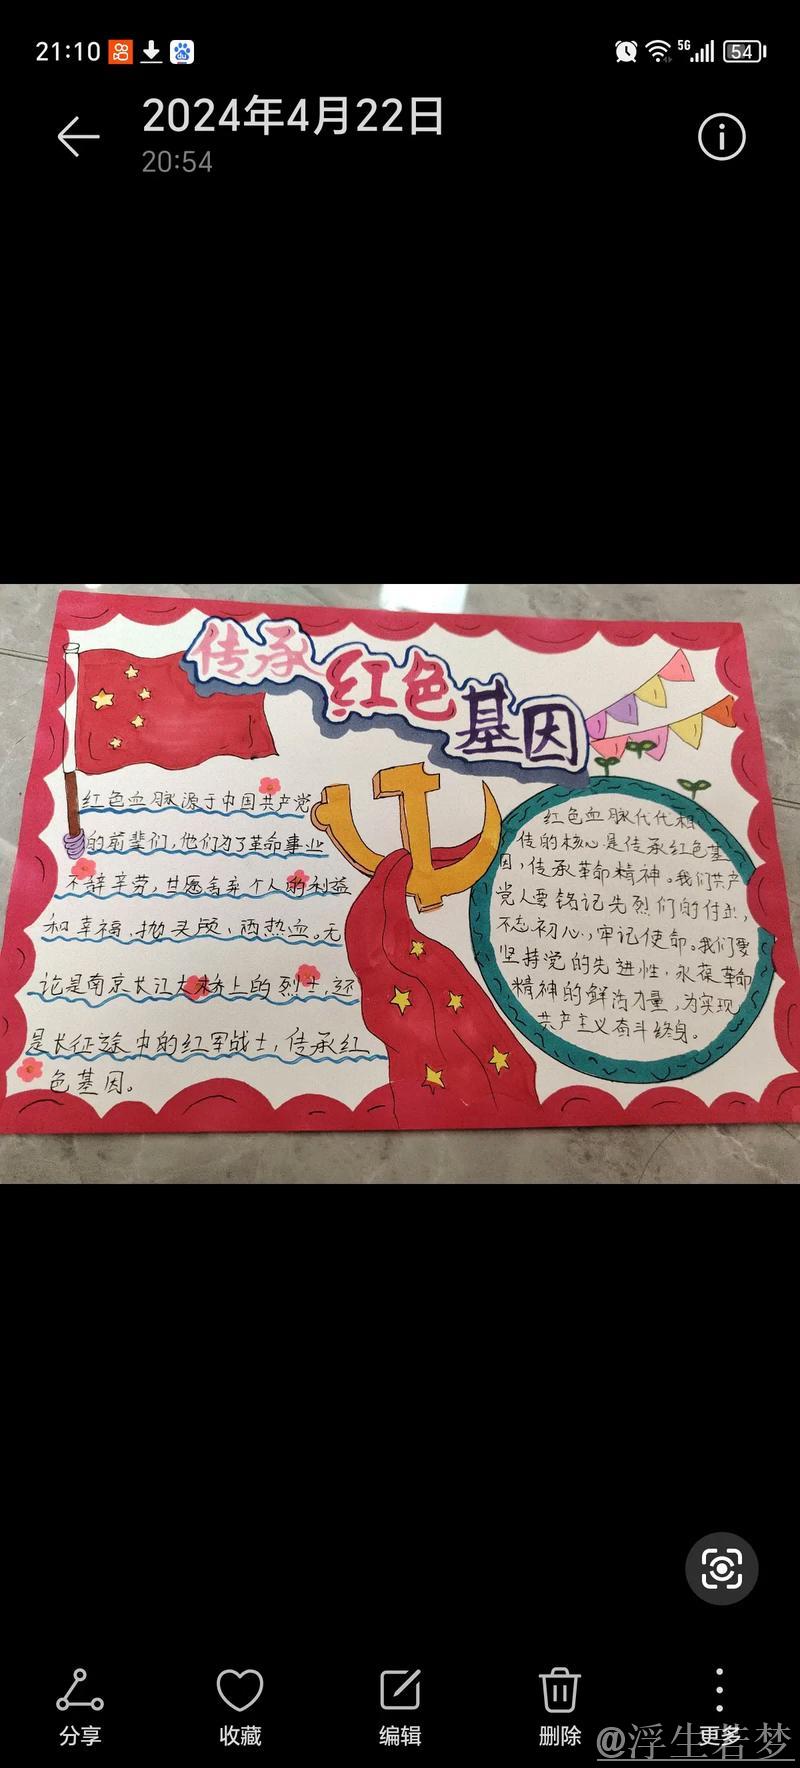 21:10
5G
54
2024年4月22日
20:54
传承红色基因
红色血脉源于中国共产党
的前辈们,他们为了革命事业
不辞辛劳,甘愿舍弃个人的利益
和幸福,抛头颅、洒热血。无
论是南京长江大桥上的烈士,还
是长征途中的红军战士,传承红
色基因。
红色血脉代代相
传的核心是传承红色基
因,传承革命精神。我们共产
党人要铭记先烈们的付出,
不忘初心,牢记使命。我们要
坚持党的先进性,永葆革命
精神的鲜活力量,为实现
共产主义奋斗终身。
分享
收藏
编辑
删除
更多
@浮生若梦